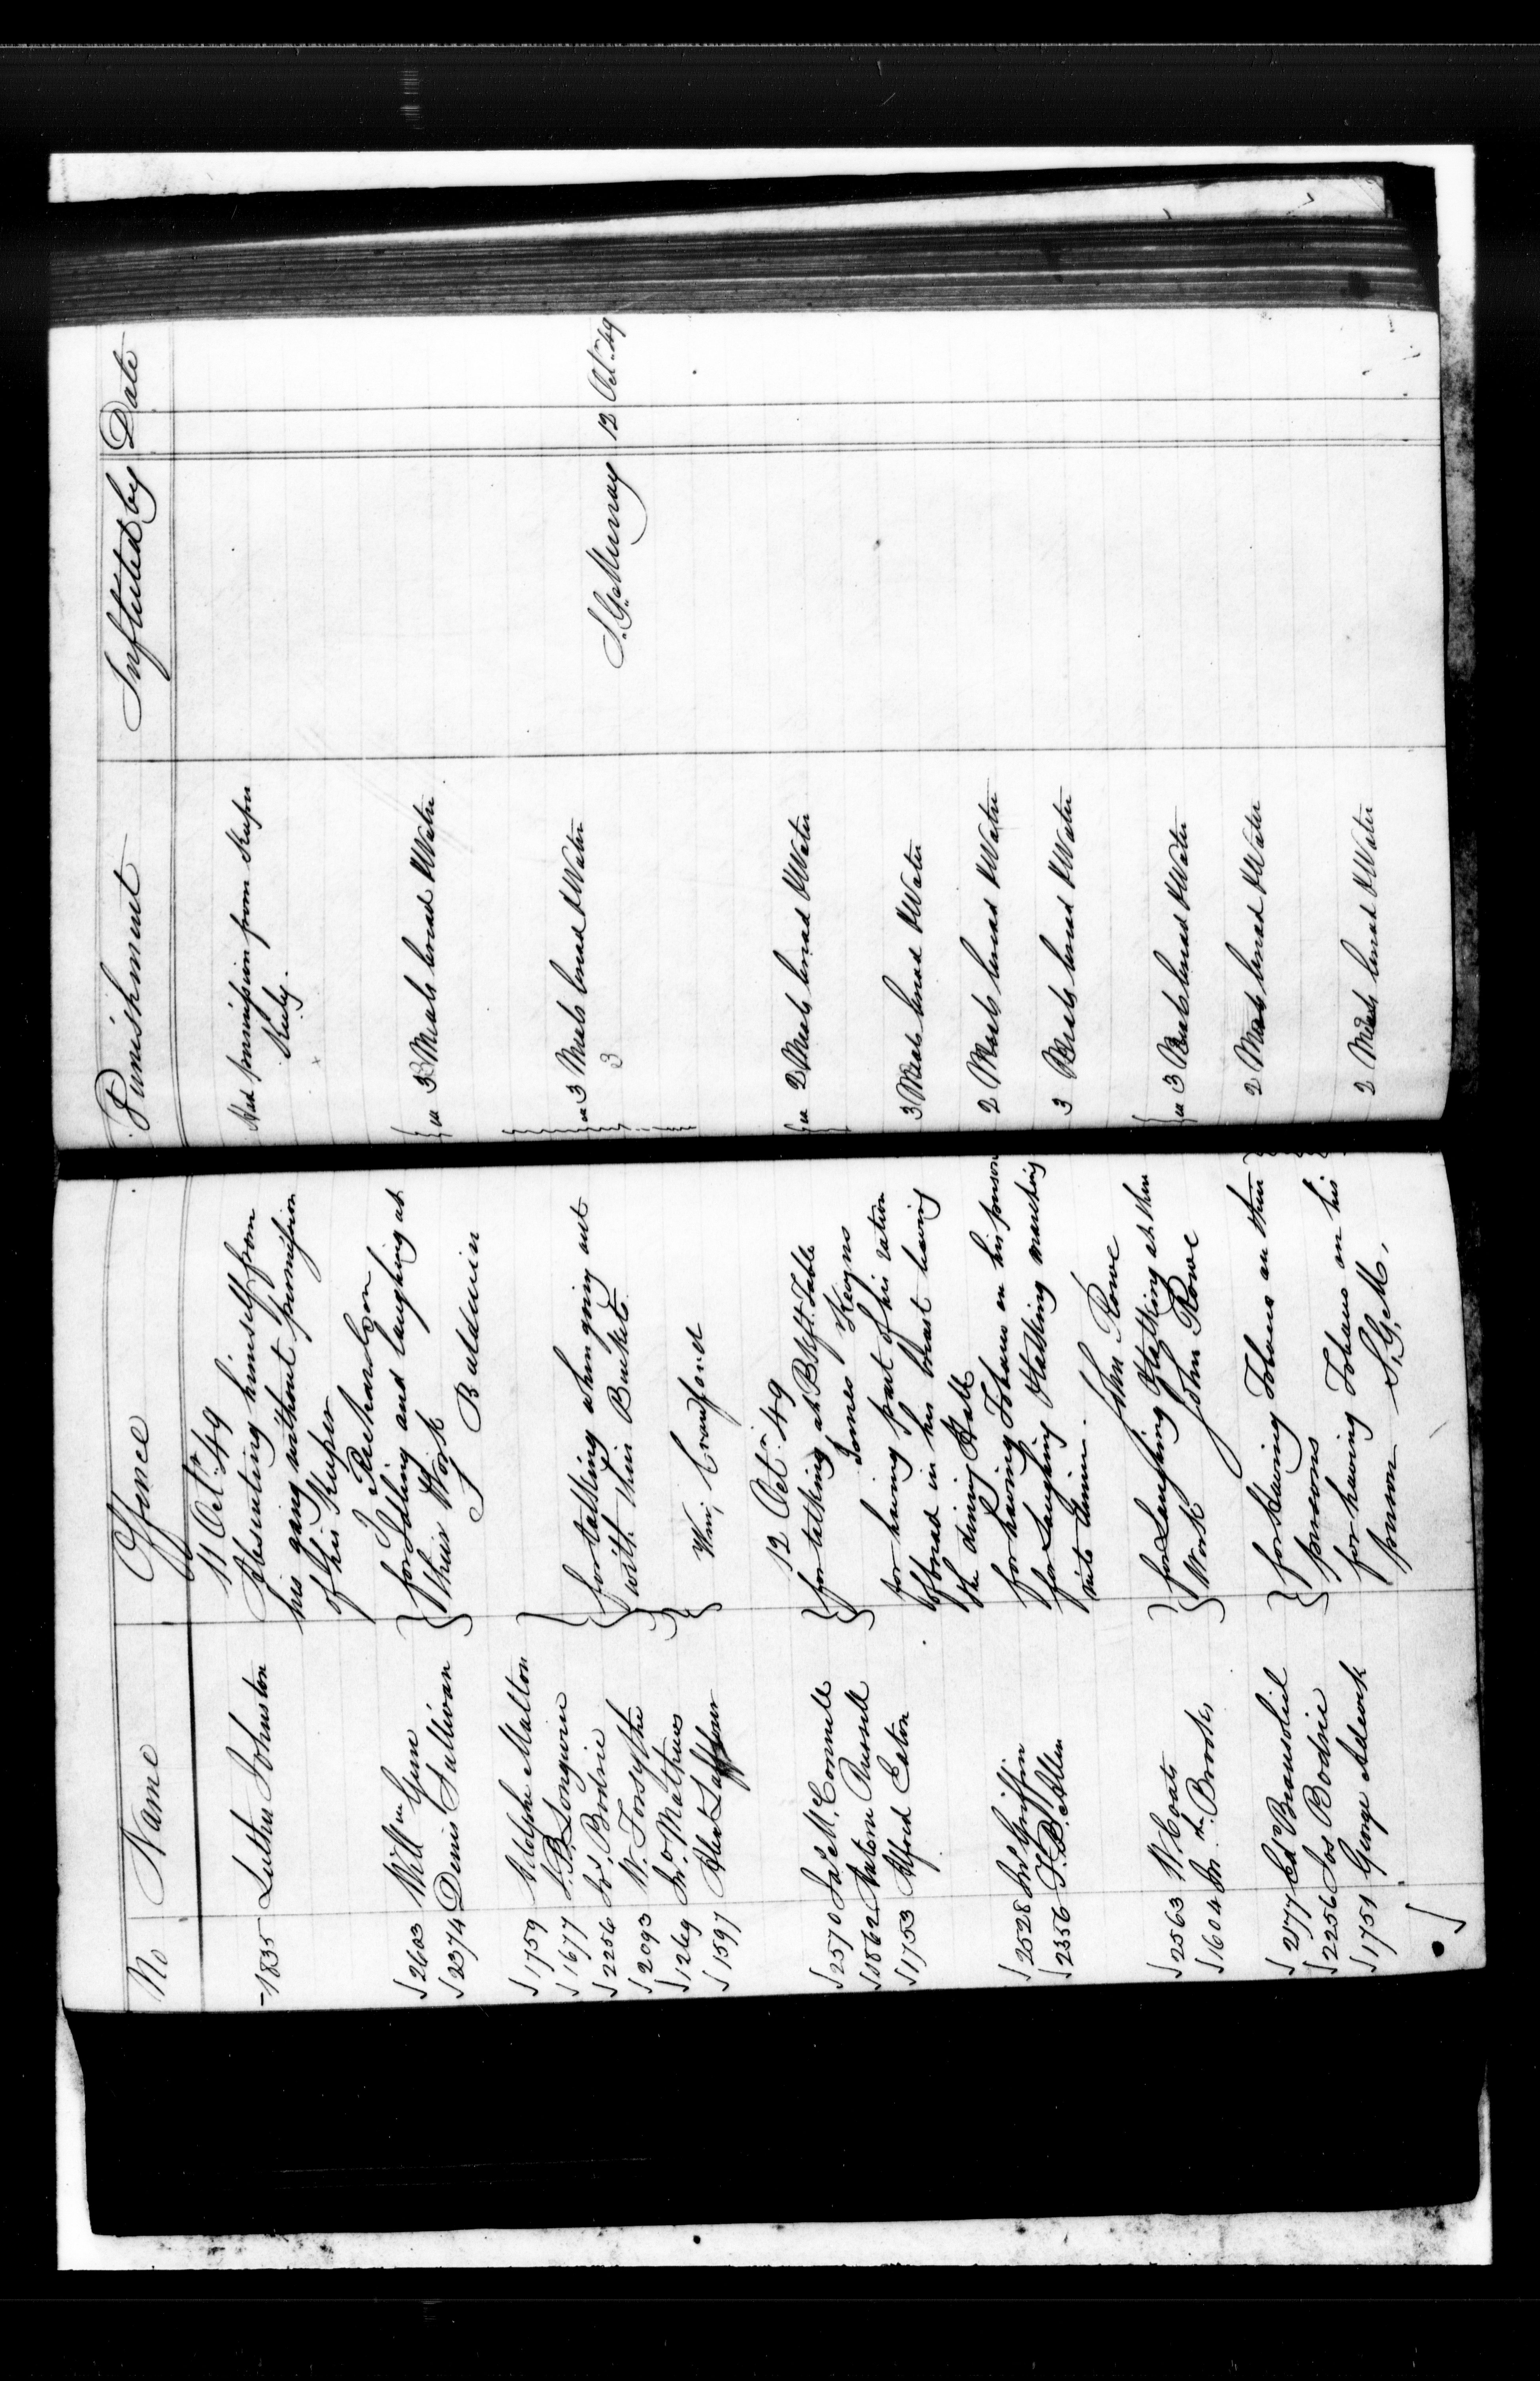 No Name Offence Punishment Inflicted by Date
11 Octr. 49
1835 Luther Johnston Absenting himself from Had permission from Keeper
his gang without permission Keely.
of his Keeper
T Richardson
2603 Willm Gunn for Talking and laughing at ea 3 Meals bread & Water
2374 Denis Sullivan their Work
S Baldwin
1759 Adolphe Malton
1677 J. B. Longwin for talking when going out ea 3 Meals bread & Water
2256 Jos. Bodrie with their Buckets 3 S. G. Murray 12 Octr. 49
2093 W. Forsythe
1269 Jno Mathews
1597 Alex Laffleur Wm; Crawford
12 Octr. 49
2570 Jas McConnell for talking at B.kft. Table ea 2 Meals bread & Water
1862 Antoine Russell James Keogns
1753 Alfred Eaton for having part of his ration 3 Meals bread & Water
of bread in his breast leaving
the dining Hall
2528 Jno. Griffin for having Tobacco on his person 2 Meals bread & Water
2356 T. B. Allen for Laughing & talking marching 3 Meals bread & Water
into dinner.
John Rowe
2563 W Coats for Laughing & talking at their ea 3 Meals bread & Water
1604 M. Brooks Work John Rowe
2177 Ed. Beausoliel for having Tobacco on their 2 Meals bread & Water
2256 Jos Bodrie persons
1751 George Adwick for having Tobacco on his 2 Meals bread & Water
person S. G. M.